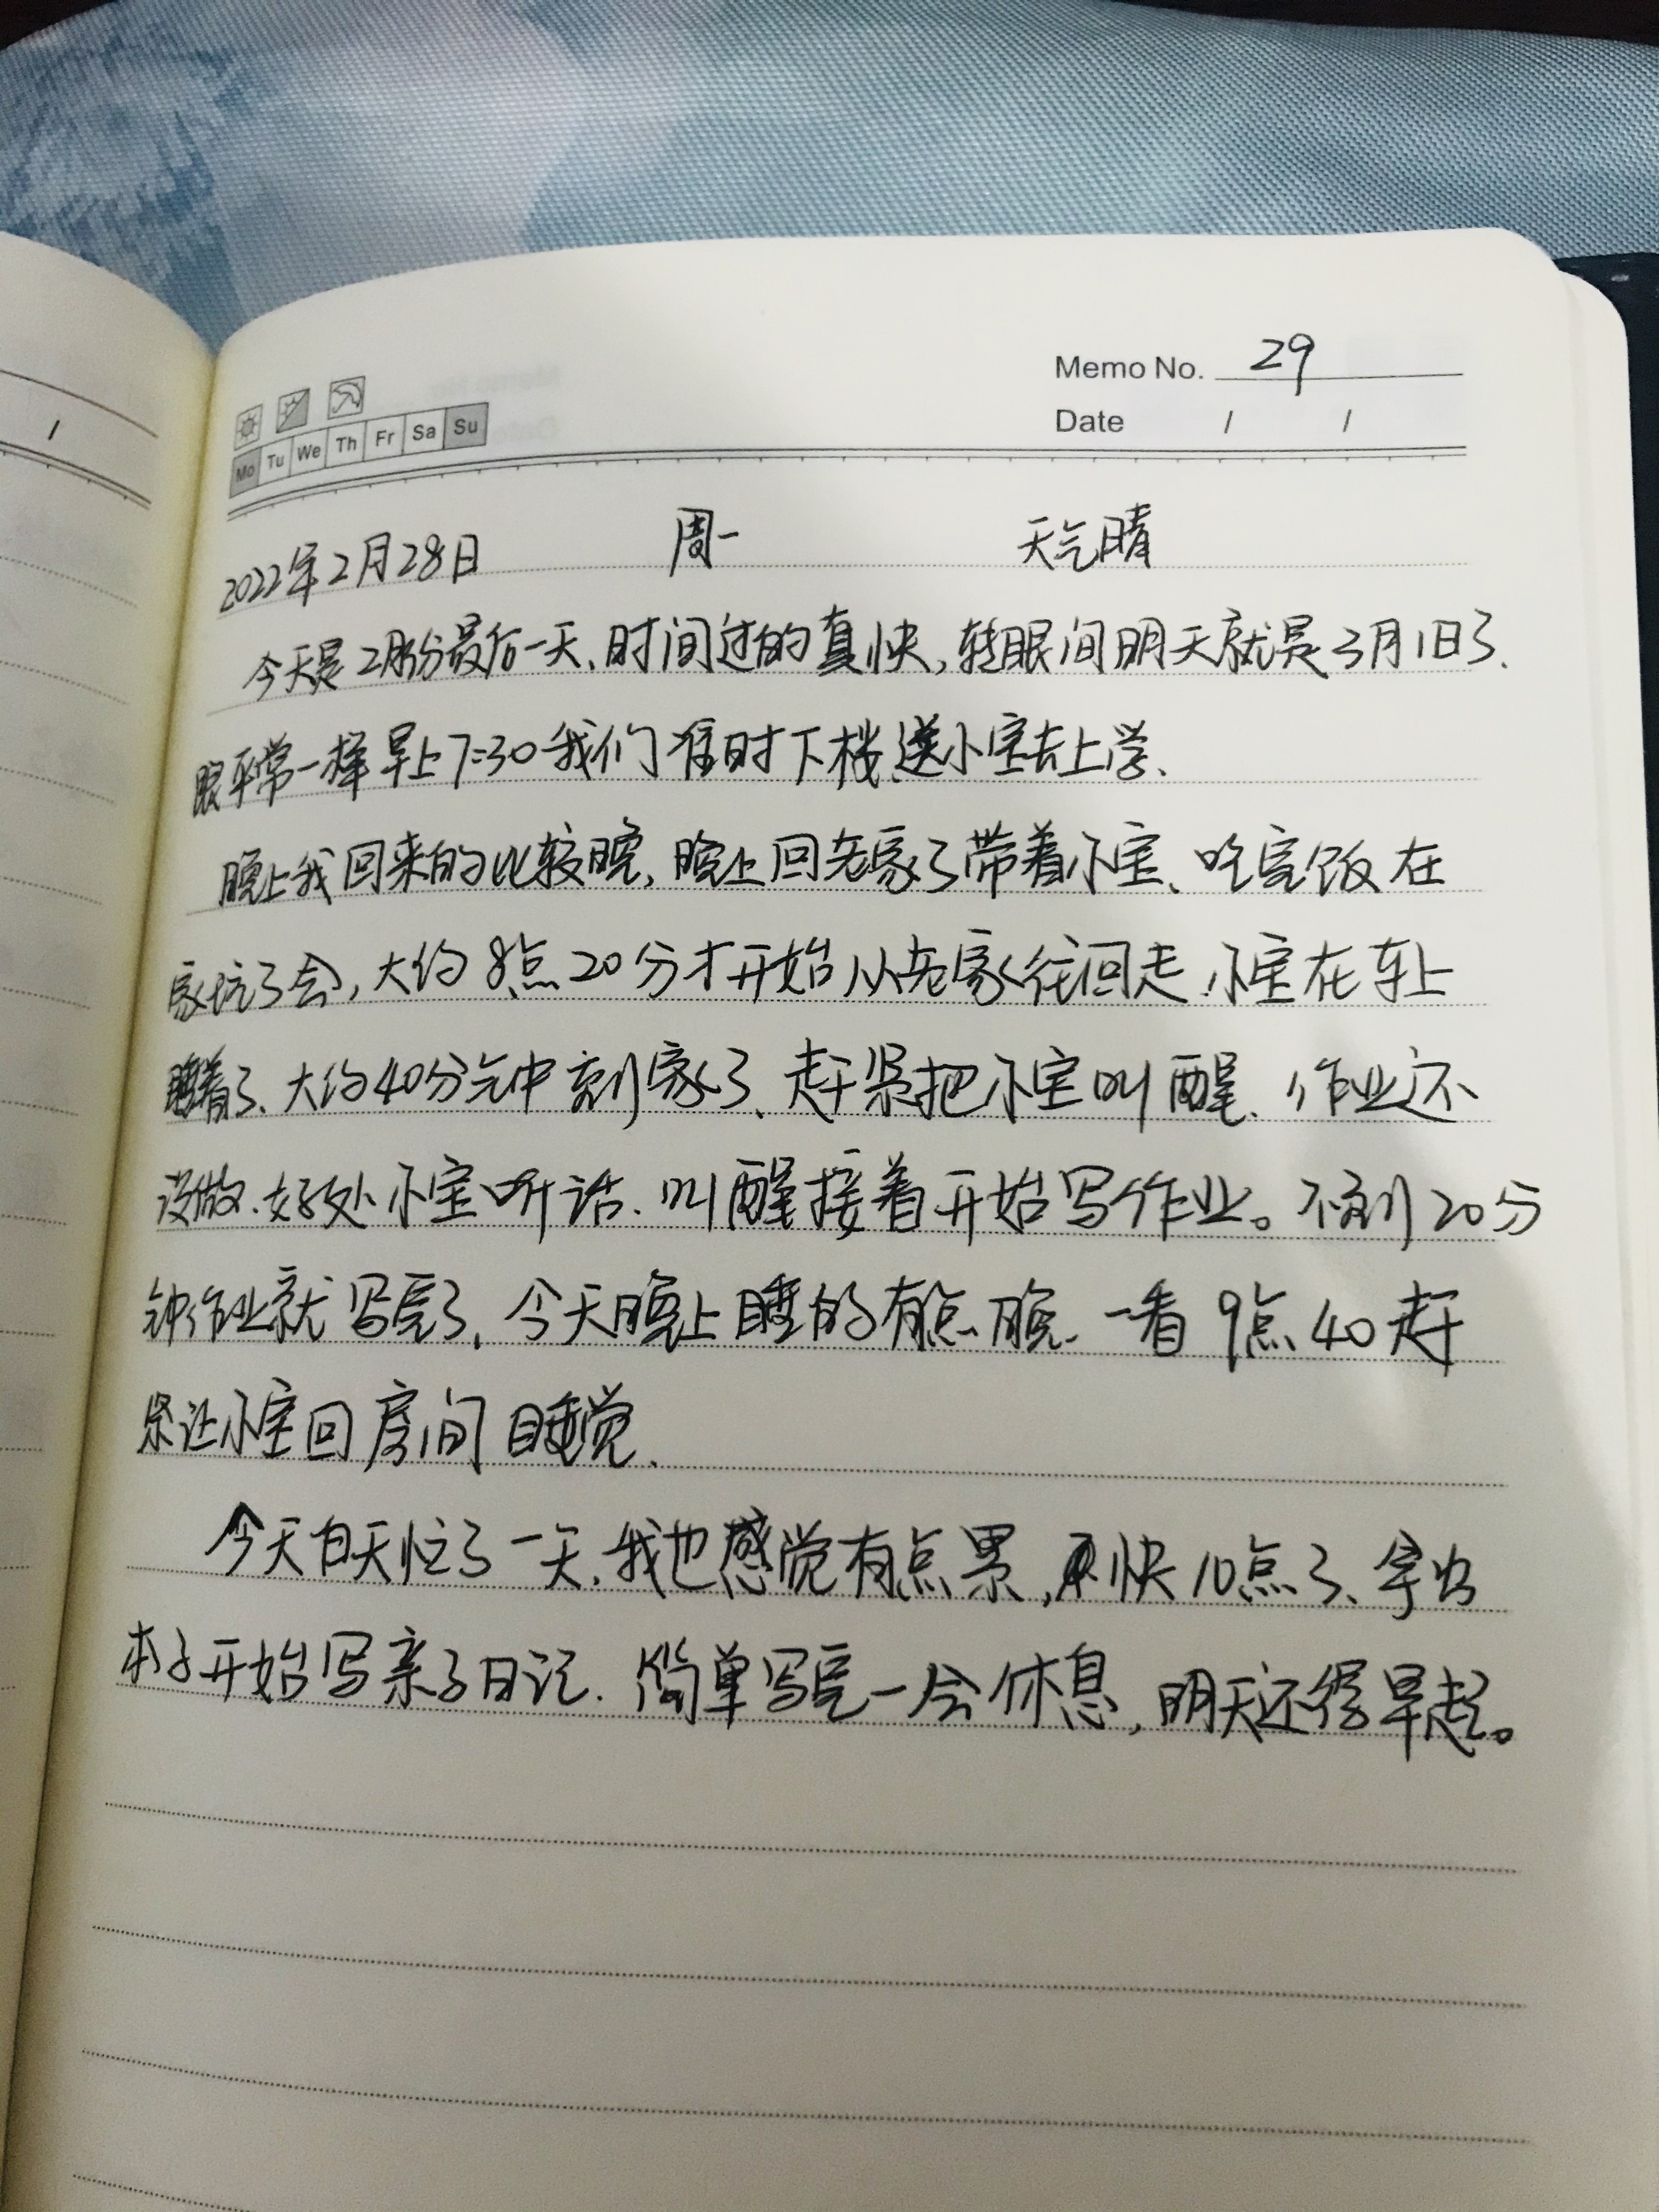 Memo No. 29
Date / /
Mo Tu We Th Fr Sa Su
2022年2月28日 周一 天气晴
今天是2月份最后一天,时间过的真快,转眼间明天就是3月1日了.
跟平常一样早上7:30我们准时下楼送小宝去上学、
晚上我回来的比较晚,晚上回老家了带着小宝、吃完饭在
家玩了会,大约8点20分才开始从老家往回走,小宝在车上
睡着了、大约40分钟到家了、赶紧把小宝叫醒、作业还
没做.好处小宝听话.叫醒接着开始写作业。不到20分
钟作业就写完了,今天晚上睡的有点晚.一看9点40赶
紧让小宝回房间睡觉.
今天白天忙了一天,我也感觉有点累,快10点了、拿出
本子开始写亲子日记.简单写完一会休息,明天还得早起。